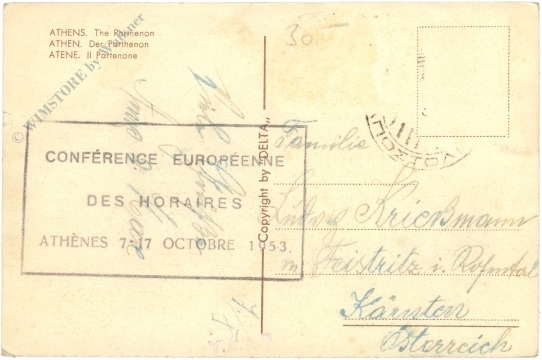 ATHENS. The Parthenon
ATHEN. Der Parthenon
ATENE. Il Partenone
© WIMSTORE by W
30.-
Viele Grüße
CONFÉRENCE EUROPÉENNE
DES HORAIRES
ATHÈNES 7-17 OCTOBRE 1953.
Copyright by "DELTA"
Familie
Ludwig Krießmann
in Feistritz i. Rosental
Kärnten
Österreich